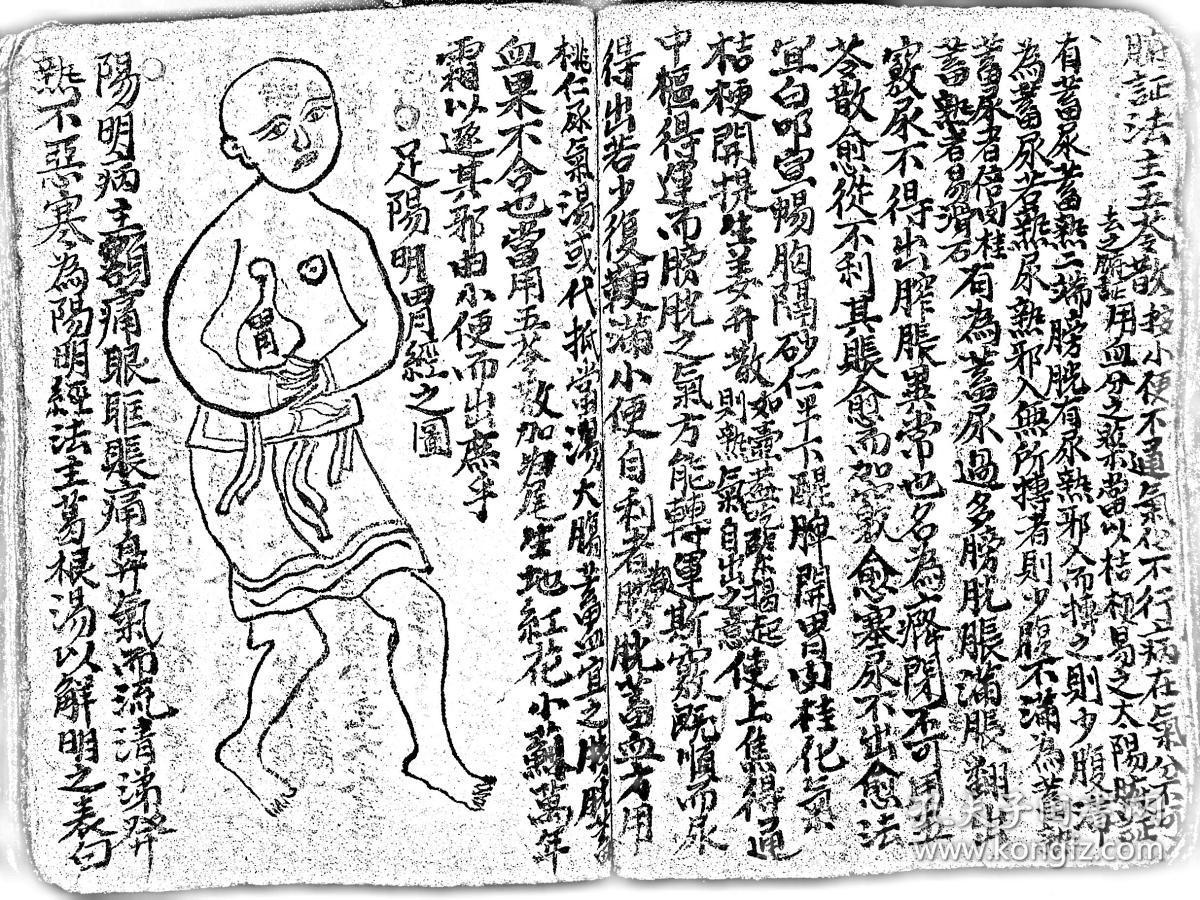 腑証法主五苓散按小便不通氣化不行病在氣分不可
去之腑証用血分之藥當以桔梗易之太陽腑証
有蓄尿蓄熱二端膀胱有尿熱邪入而摶之則少腹滿
為蓄尿若無尿熱邪入無所摶者則少腹不滿為蓄熱
蓄尿者倍肉桂
蓄熱者易滑石
有為蓄尿過多膀胱脹滿脹翻
竅尿不得出脬脹異常也名為癃閉不可用五
苓散愈從不利其脹愈而加竅愈塞尿不出愈法
宜白叩宣暢胸隔砂仁半下醒脾開胃肉桂化氣
桔梗開提生姜升散如壺蓋緊揭起
則熱氣自出之意
使上焦得通
中樞得運而膀胱之氣方能轉運斯竅既順而尿
得出若少復鞕滿小便自利者膀胱蓄血方用
桃仁承氣湯或代抵當湯大腸蓄血宜之膀胱蓄
血果不合也當用五苓散加為尾生地紅花小薊萬年
霜以逐其邪由小便而出庶乎
足陽明胃經之圖
胃
陽明病主額痛眼眶脹痛鼻氣而流清涕發
熱不惡寒為陽明經法主葛根湯以解明之表勾
孔夫子旧书网
www.kongfz.com